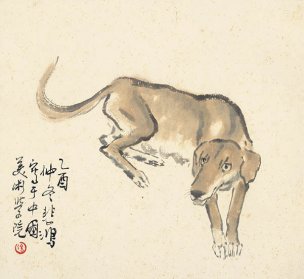 乙酉
仲冬悲鴻
寫于中國
美術學院